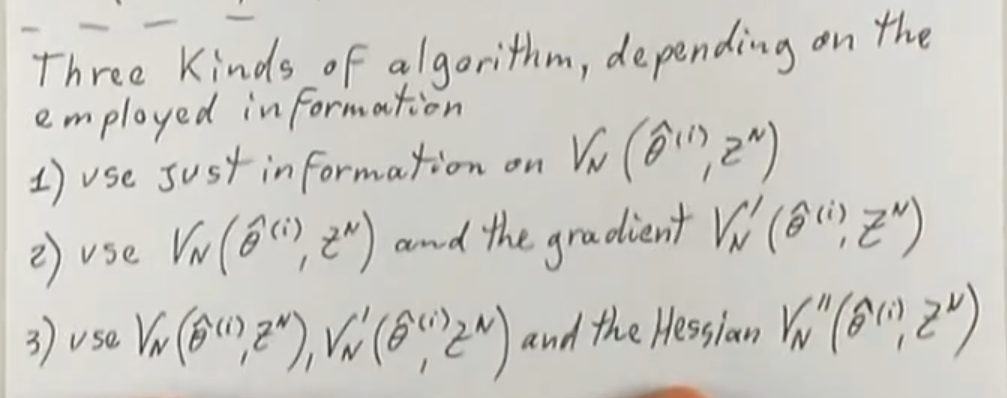 Three kinds of algorithm, depending on the
employed information
1) use just information on V_N (θ̂^(i), Z^N)
2) use V_N (θ̂^(i), Z^N) and the gradient V_N' (θ̂^(i), Z^N)
3) use V_N (θ̂^(i), Z^N), V_N' (θ̂^(i), Z^N) and the Hessian V_N'' (θ̂^(i), Z^N)